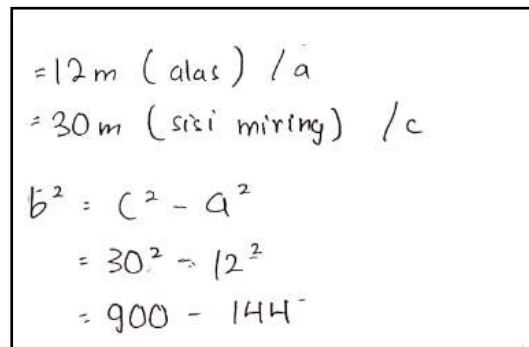 = 12 m ( alas ) / a
= 30 m ( sisi miring ) / c
b² = c² - a²
= 30² - 12²
= 900 - 144